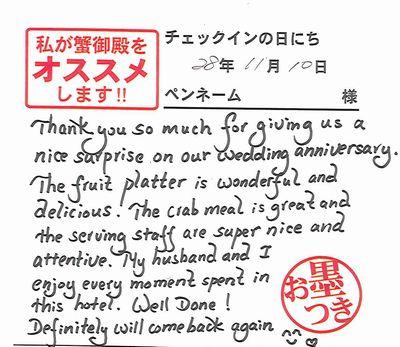 私が蟹御殿を
オススメ
します!!
チェックインの日にち
28年 11月 10日
ペンネーム 様
Thank you so much for giving us a
nice surprise on our wedding anniversary.
The fruit platter is wonderful and
delicious. The crab meal is great and
the serving staff are super nice and
attentive. My husband and I
enjoy every moment spent in
this hotel. Well Done!
Definitely will come back again
お墨
つき